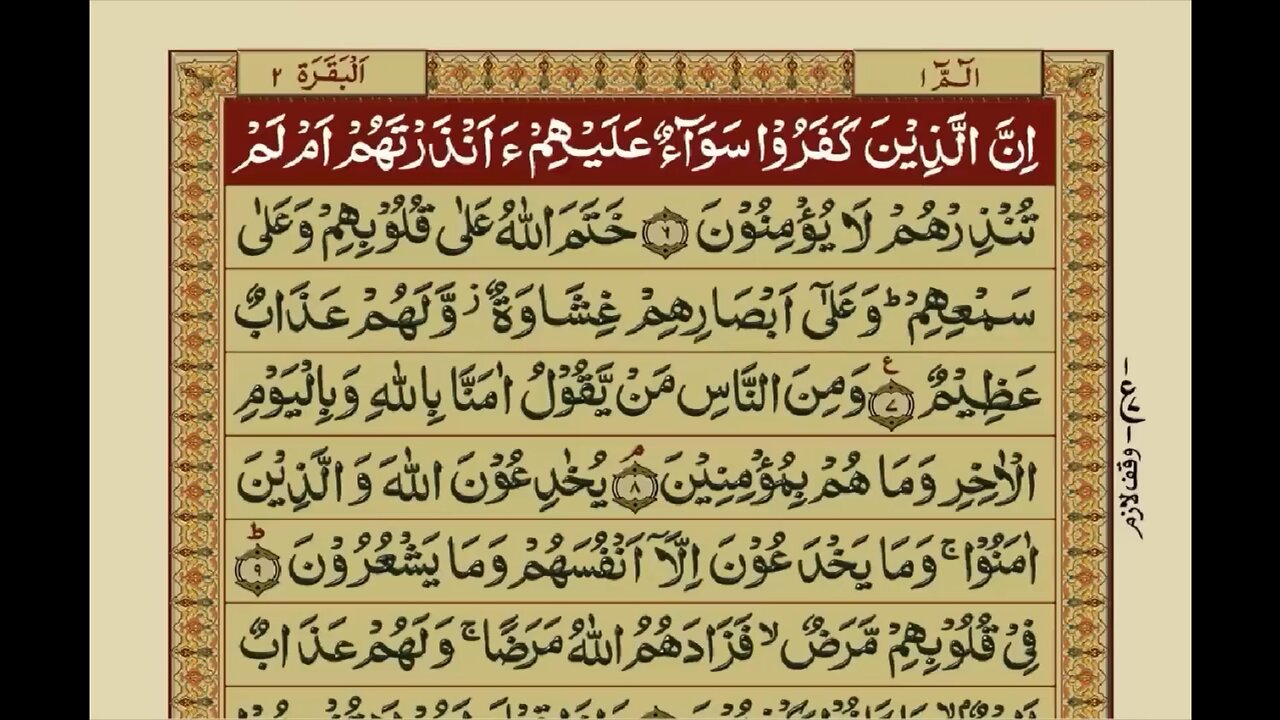 الٓمّٓ ۱
اَلْبَقَرَة ۲
اِنَّ الَّذِيْنَ كَفَرُوْا سَوَآءٌ عَلَيْهِمْ ءَاَنْذَرْتَهُمْ اَمْ لَمْ
تُنْذِرْهُمْ لَا يُؤْمِنُوْنَ ۶ خَتَمَ اللّٰهُ عَلٰى قُلُوْبِهِمْ وَعَلٰى
سَمْعِهِمْ ؕ وَعَلٰٓى اَبْصَارِهِمْ غِشَاوَةٌ ز وَّلَهُمْ عَذَابٌ
عَظِيْمٌ ۷ ع وَمِنَ النَّاسِ مَنْ يَّقُوْلُ اٰمَنَّا بِاللّٰهِ وَبِالْيَوْمِ
الْاٰخِرِ وَمَا هُمْ بِمُؤْمِنِيْنَ ۘ ۸ يُخٰدِعُوْنَ اللّٰهَ وَالَّذِيْنَ
اٰمَنُوْا ۚ وَمَا يَخْدَعُوْنَ اِلَّاۤ اَنْفُسَهُمْ وَمَا يَشْعُرُوْنَ ؕ ۹
فِيْ قُلُوْبِهِمْ مَّرَضٌ ۙ فَزَادَهُمُ اللّٰهُ مَرَضًا ۚ وَلَهُمْ عَذَابٌ
وقف لازم